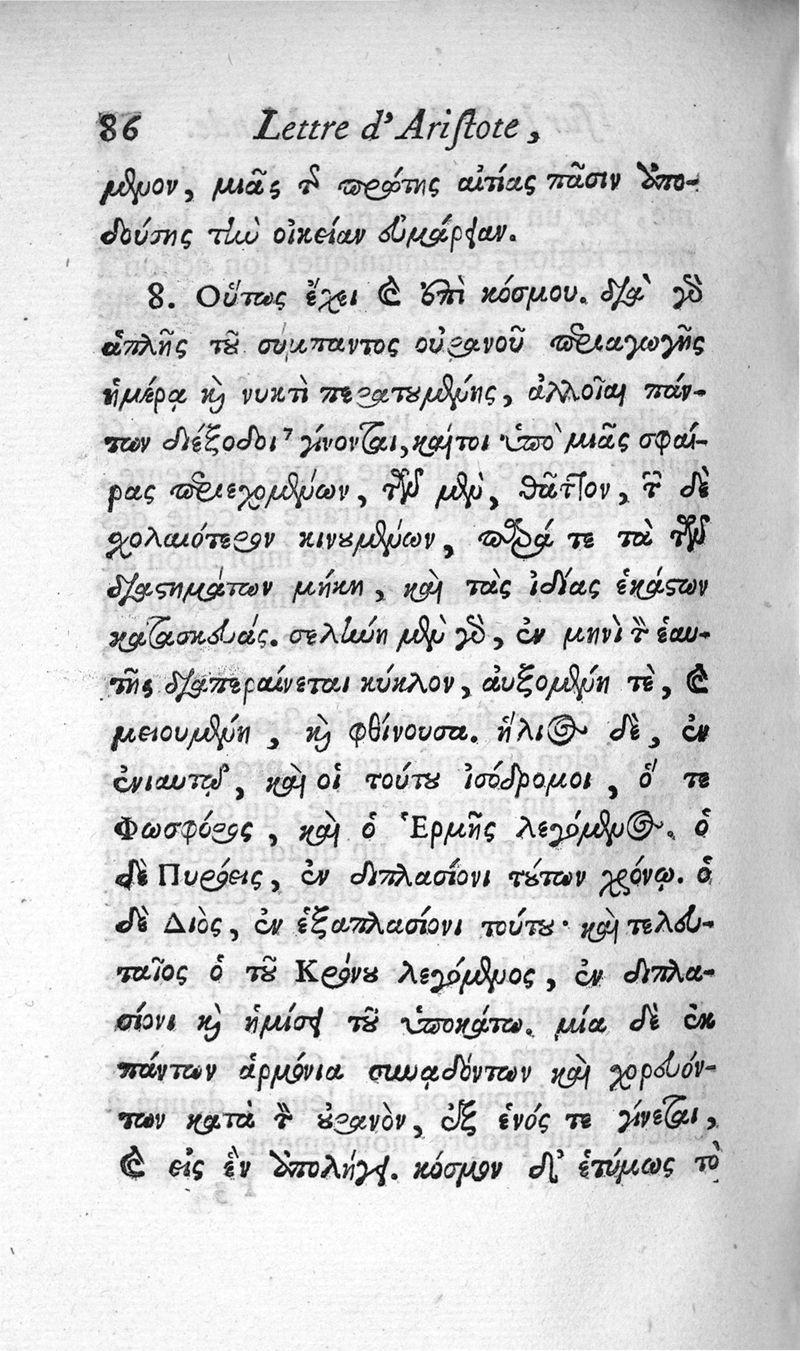 86 Lettre d'Aristote,
μενον, μιᾶς τῆς πρώτης αἰτίας πᾶσιν ἀπο-
δούσης τὴν οἰκείαν εὐμάρειαν.
8. Οὕτως ἔχει καὶ ἐπὶ κόσμου. διὰ γὰρ
ἁπλῆς τοῦ σύμπαντος οὐρανοῦ περιαγωγῆς
ἡμέρᾳ καὶ νυκτὶ περατουμένης, ἀλλοῖαι πάν-
των διέξοδοι⁷ γίνονται, καίτοι ὑπὸ μιᾶς σφαί-
ρας περιεχομένων, τῶν μὲν, θᾶττον, τῶν δὲ
σχολαιότερον κινουμένων, παρά τε τὰ τῶν
διαστημάτων μήκη, καὶ τὰς ἰδίας ἑκάστων
κατασκευάς. σελήνη μὲν γὰρ, ἐν μηνὶ τὸν ἑαυ-
τῆς διαπεραίνεται κύκλον, αὐξομένη τὲ, καὶ
μειουμένη, καὶ φθίνουσα. ἥλιος δὲ, ἐν
ἐνιαυτῷ, καὶ οἱ τούτου ἰσόδρομοι, ὅ τε
Φωσφόρος, καὶ ὁ Ἑρμῆς λεγόμενος. ὁ
δὲ Πυρόεις, ἐν διπλασίονι τούτων χρόνῳ. ὁ
δὲ Διὸς, ἐν ἑξαπλασίονι τούτου· καὶ τελευ-
ταῖος ὁ τοῦ Κρόνου λεγόμενος, ἐν διπλα-
σίονι καὶ ἡμίσει τοῦ ὑποκάτω. μία δὲ ἐκ
πάντων ἁρμόνια συναδόντων καὶ χορευόν-
των κατὰ τὸν οὐρανὸν, ἐξ ἑνός τε γίνεται,
καὶ εἰς ἓν ἀπολήγει. κόσμον δ' ἐτύμως τὸ